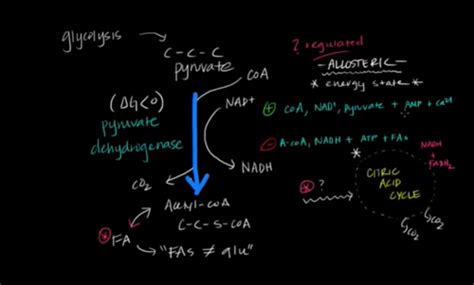 glycolysis
C-C-C
pyruvate
CoA
(ΔG<0)
pyruvate
dehydrogenase
NAD+
NADH
CO₂
Acetyl-CoA
C-C-S-CoA
FA
"FAs ≠ glu"
? regulated
-ALLOSTERIC-
* energy state *
+ CoA, NAD+, pyruvate + AMP + Ca²⁺
- A-CoA, NADH + ATP + FAs
* ?
*
CITRIC
ACID
CYCLE
NADH
+
FADH₂
CO₂
CO₂